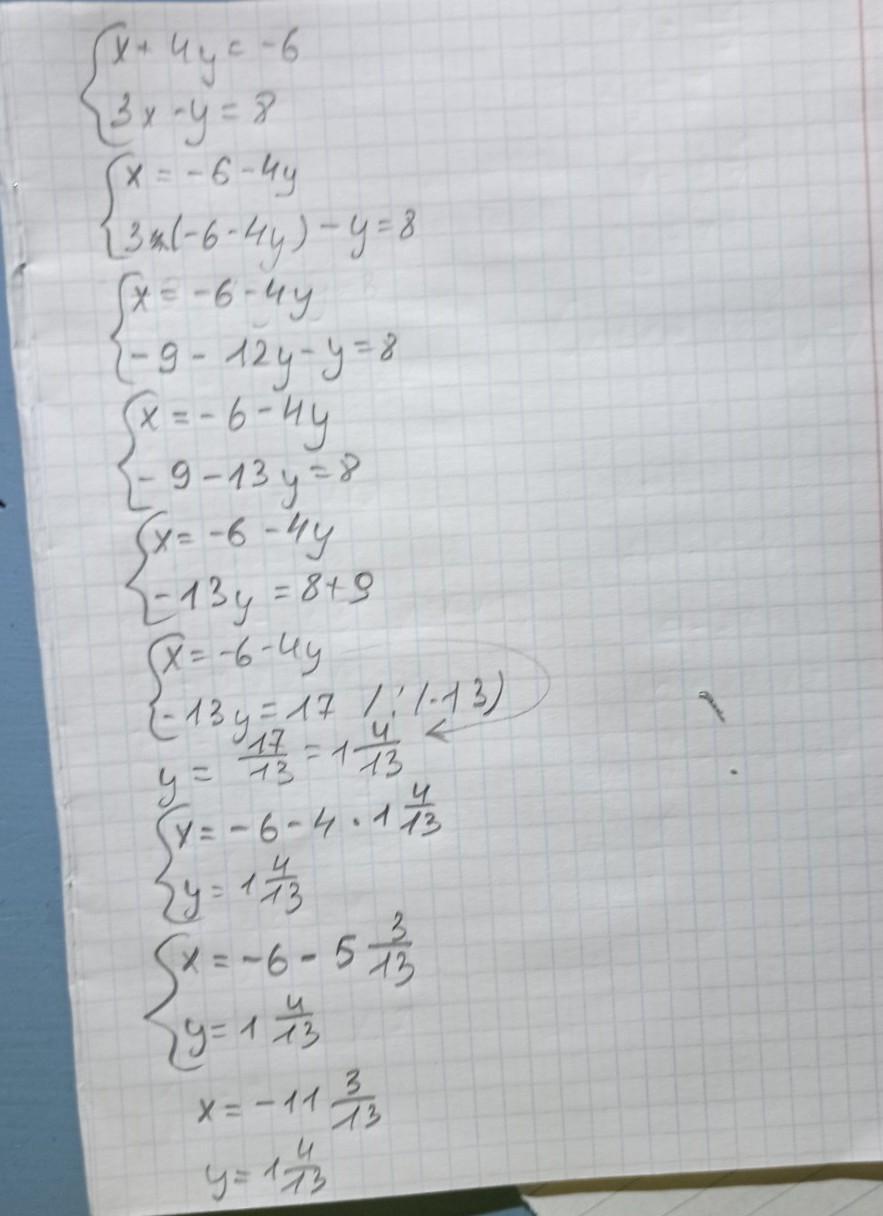 {x + 4y = -6
{3x - y = 8
{x = -6 - 4y
{3(-6 - 4y) - y = 8
{x = -6 - 4y
{-9 - 12y - y = 8
{x = -6 - 4y
{-9 - 13y = 8
{x = -6 - 4y
{-13y = 8 + 9
{x = -6 - 4y
{-13y = 17 /:(-13)
y = 17/13 = 1 4/13
{x = -6 - 4 · 1 4/13
{y = 1 4/13
{x = -6 - 5 3/13
{y = 1 4/13
x = -11 3/13
y = 1 4/13